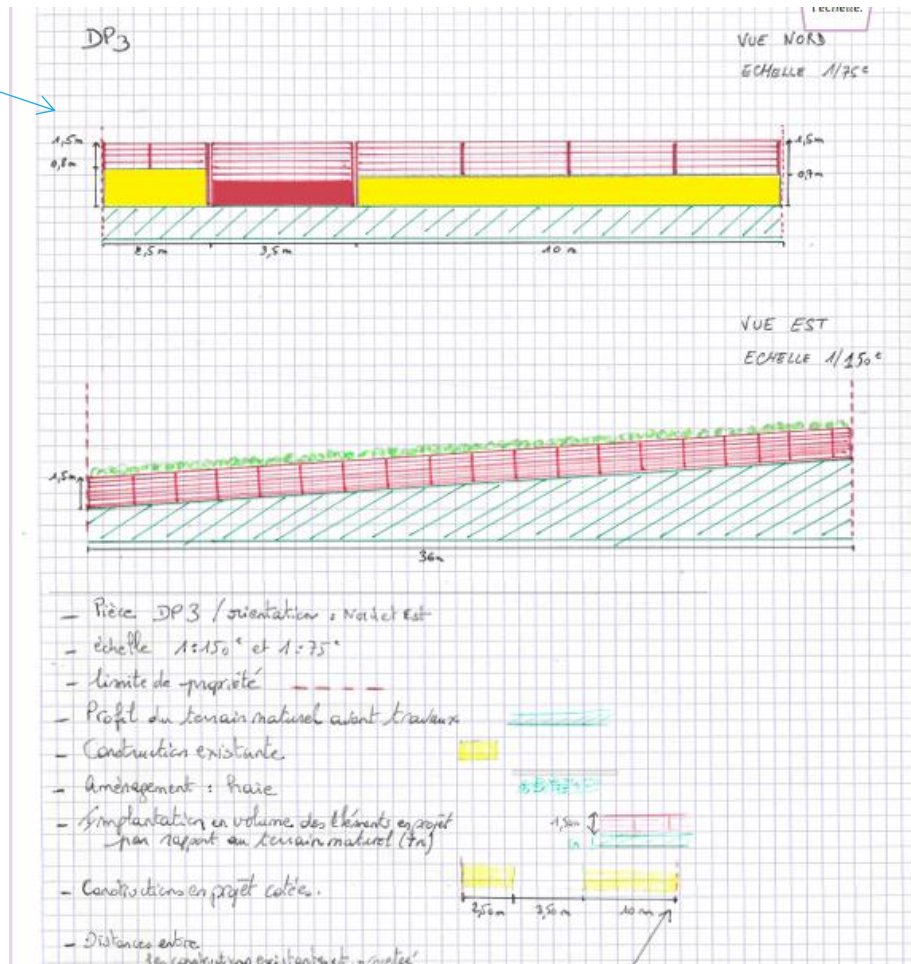 l'échelle.
DP3
VUE NORD
ECHELLE 1/75e
1,5m
0,8m
1,5m
0,7m
2,5m
3,5m
10 m
VUE EST
ECHELLE 1/150e
1,5m
36m
- Pièce DP3 / orientation : Nord et Est
- échelle 1:150e et 1:75e
- limite de propriété
- Profil du terrain naturel avant travaux
- Construction existante.
- Aménagement : haie
- Implantation en volume des éléments en projet
par rapport au terrain naturel (Tn)
1,50m
Tn
- Constructions en projet cotées.
2,50m
3,50m
10 m
- Distances entre
les constructions existantes et projetés